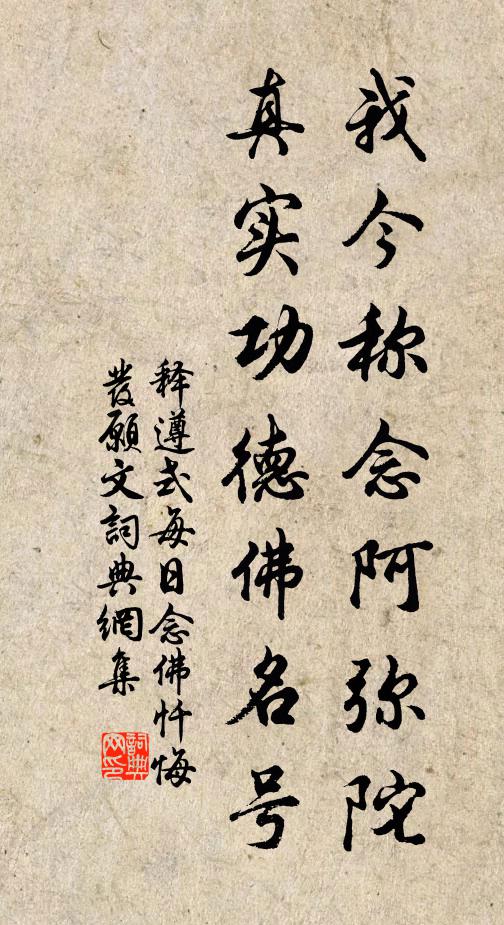 我今称念阿弥陀
真实功德佛名号
释遵式每日念佛忏悔
發願文詞典網集
詞典
网印